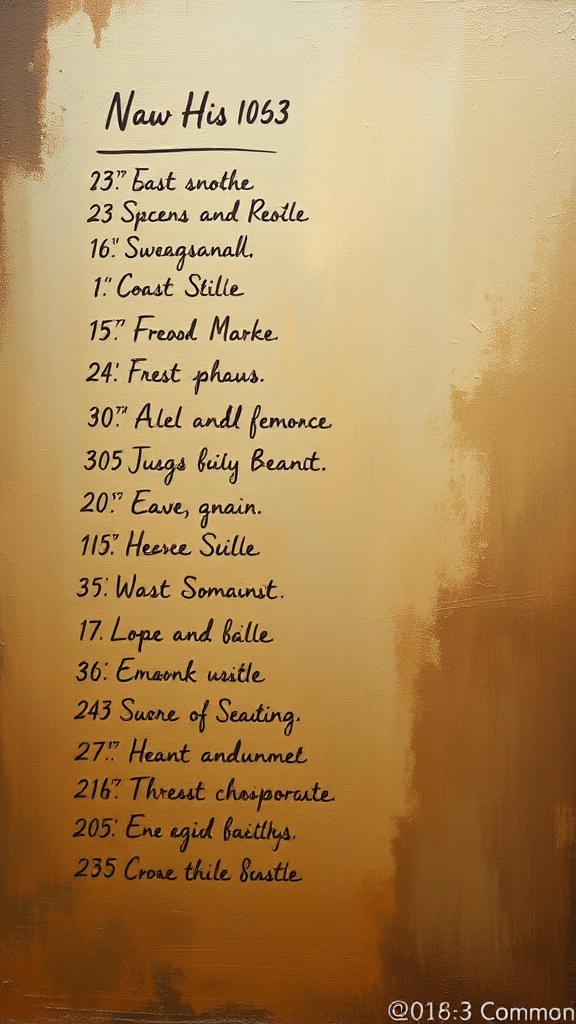 Naw His 1053
23." East snothe
23 Spcens and Reotle
16." Sweagsanall.
1." Coast Stille
15." Freood Marke.
24.' Frest phaus.
30." Alel andl femonce
305 Jusgs bily Beanct.
20." Eave, gnain.
115." Heesee Sulle
35.' Wast Somaunst.
17. Lope and balle
36.' Emaonk usitle
243 Sucre of Seatting.
27." Heant andunmet
216." Threst chesporcute.
205.' Ene egid baitllys.
235 Croae thile Sustle
@018:3 Common